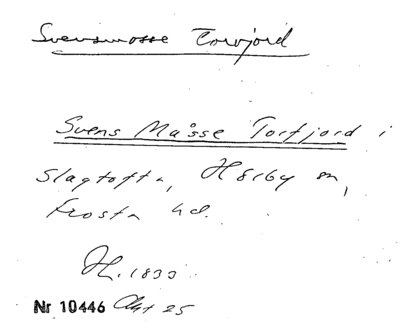 Svensmosse Torvjord
Svens Måsse Torfjord i
Slagtofta, Hörby sn,
Frosta hd.
H. 1833
Nr 10446 Akt 25